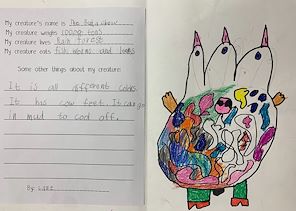 My creature's name is The
My creature weighs 10000 tons
My creature lives Rain forest
My creature eats fish worms and leafs
Some other things about my creature:
It is all different colors.
It has cow feet. It can go
in mud to cool off.
By: